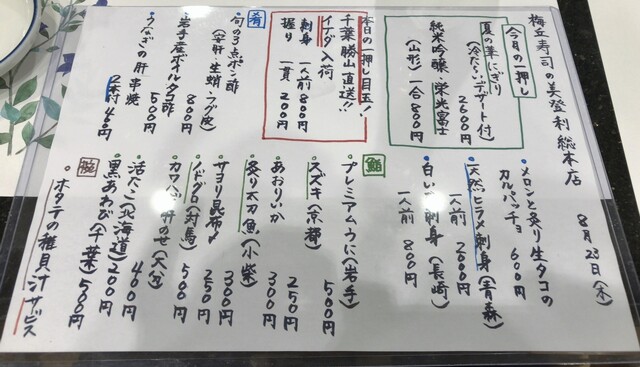 梅丘寿司の美登利総本店
8月23日(木)
今月の一押し
夏の華にぎり
(冷たいデザート付)
2600円
純米吟醸、栄光冨士
(山形) 一合 800円
本日の一押し目玉!
千葉勝山直送!!
イシダイ入荷
刺身 一人前 800円
握り 一貫 200円
肴
・旬の3点ポン酢
(安肝・生蛸・フグ皮)
800円
・岩手産ボイルタコ酢
500円
・うなぎの肝串焼
2本付 400円
・メロンと炙り生タコの
カルパッチョ 600円
・天然ヒラメ刺身(青森)
一人前 2000円
・白いか刺身(長崎)
一人前 800円
鮨
・プレミアムうに(岩手)
500円
・スズキ(京都)
250円
・あおりいか
300円
・炙り太刀魚(小柴)
300円
・サヨリ昆布〆
250円
・ノドグロ(対馬)
500円
・カワハギ肝のせ(大分)
500円
・活だこ(北海道)
400円
・黒あわび(千葉)
500円
椀
・ホタテの稚貝汁サービス